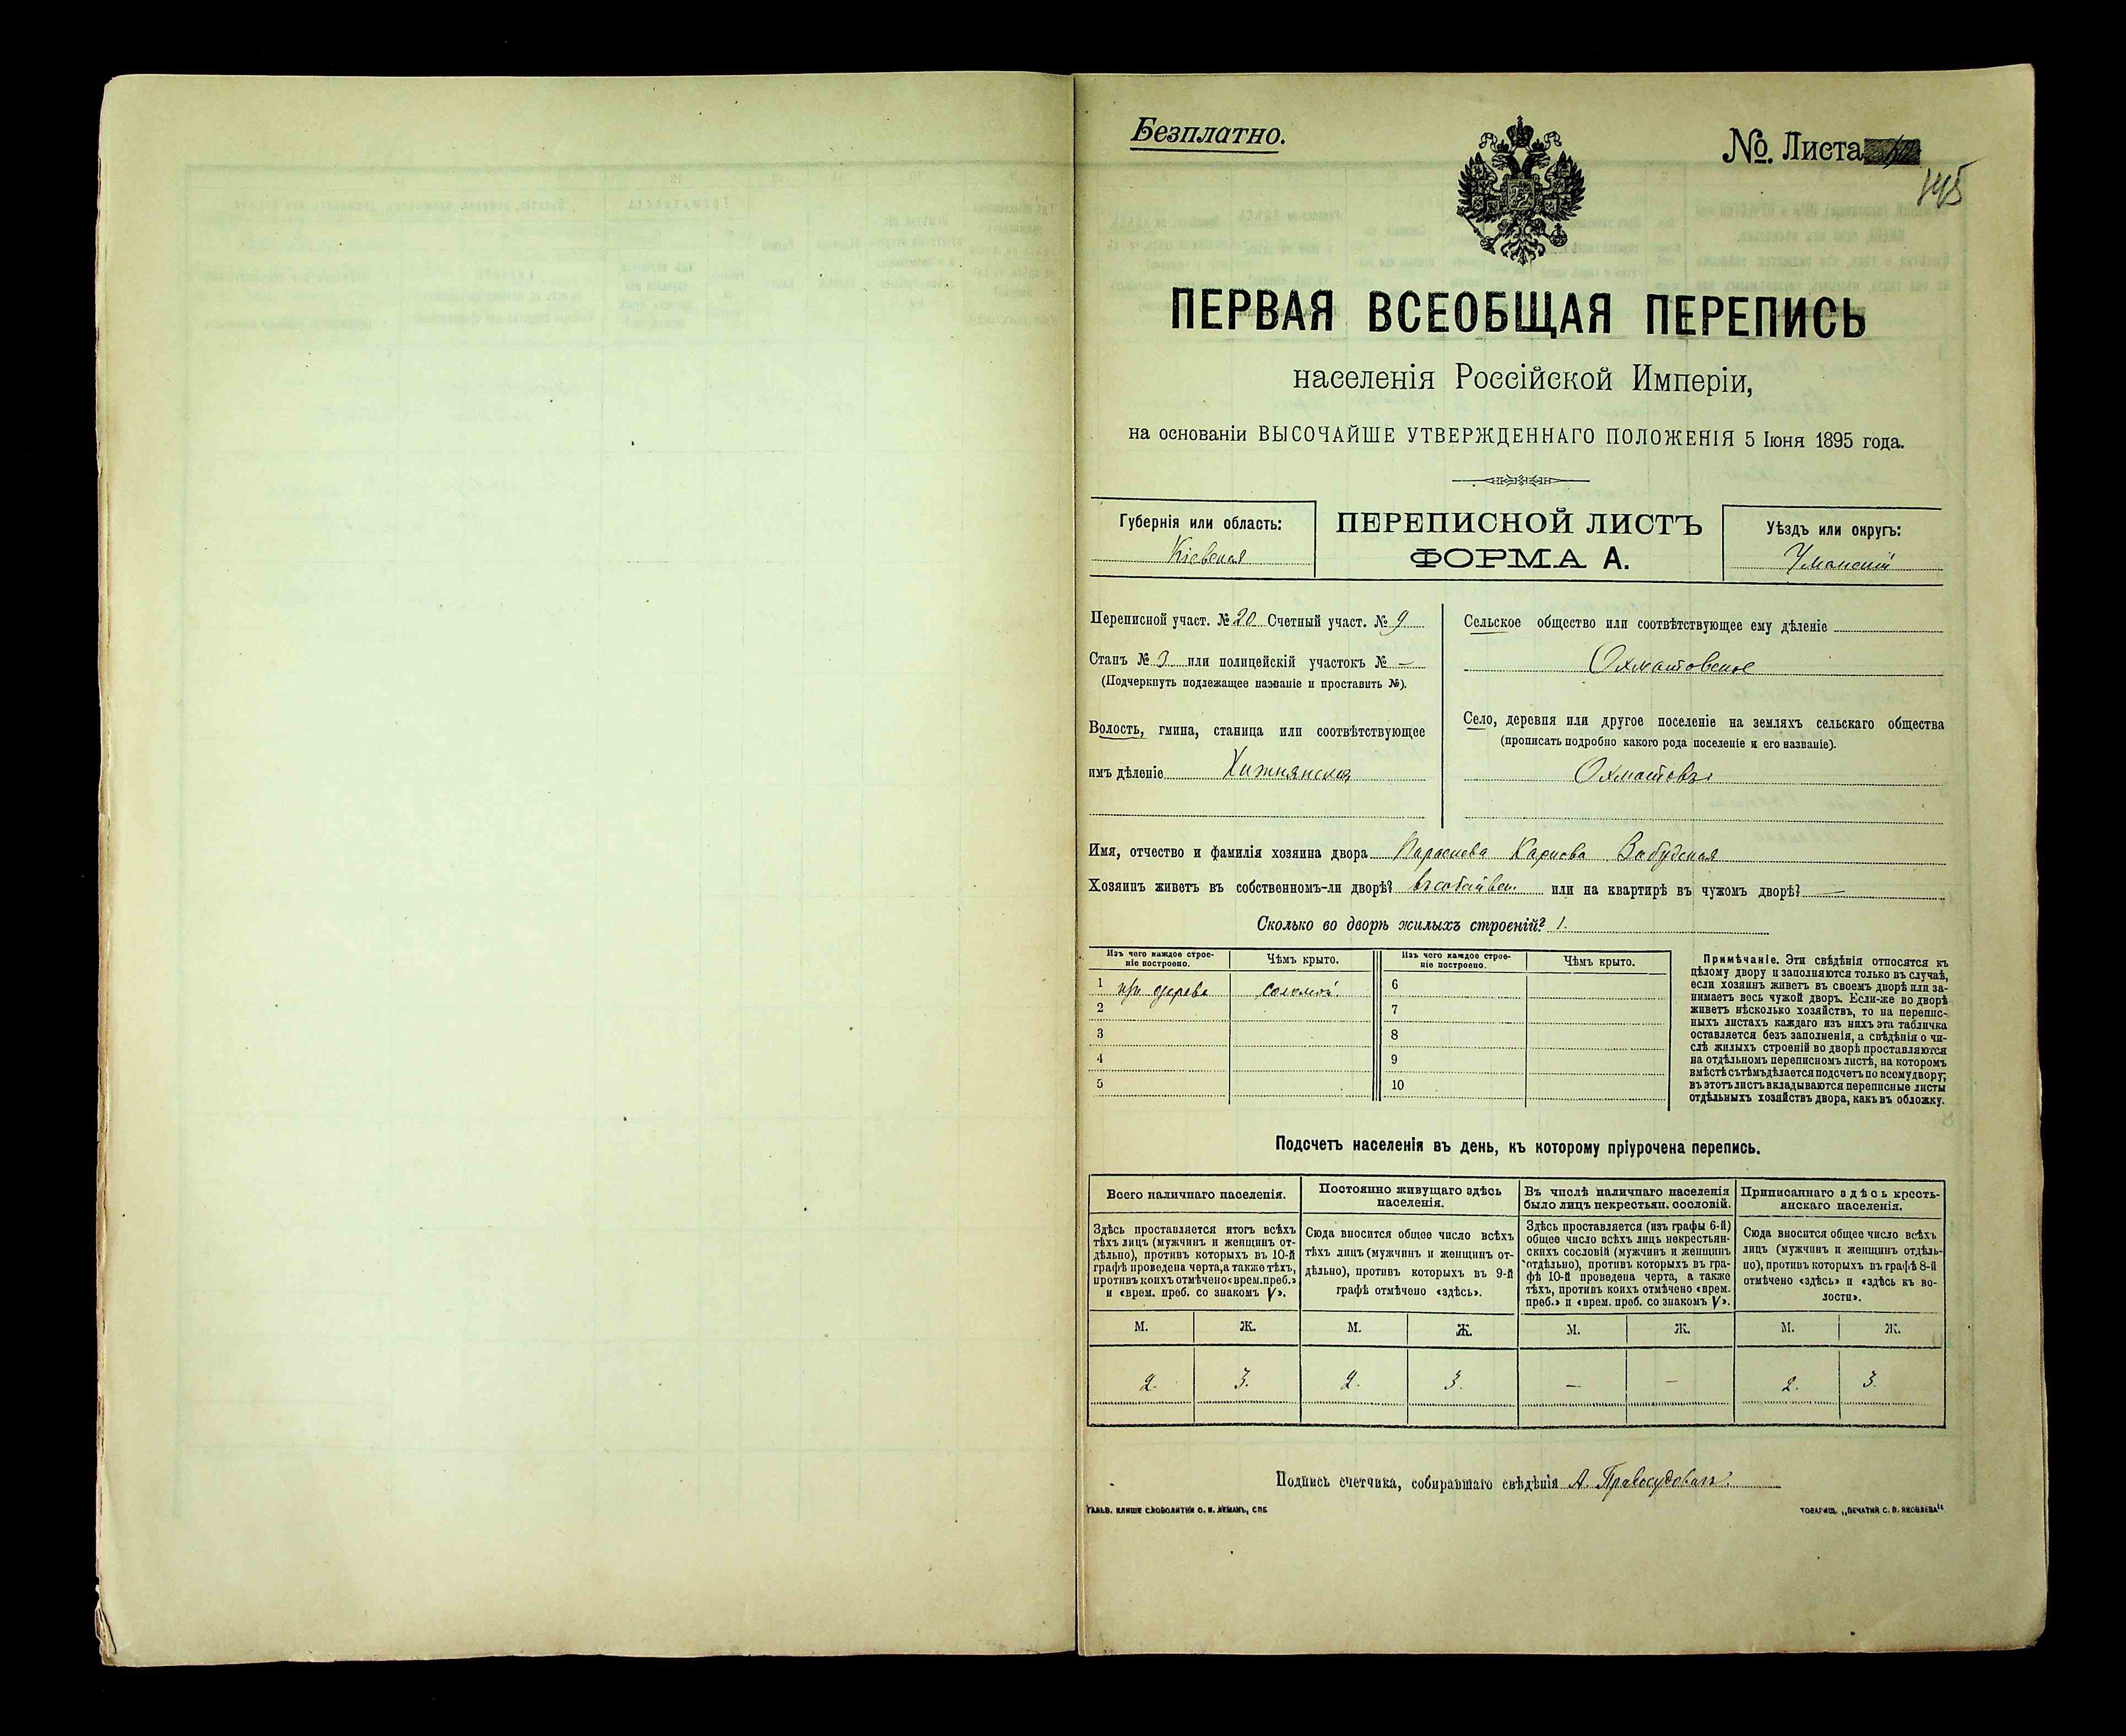 Безплатно.
№. Листа
145
ПЕРВАЯ ВСЕОБЩАЯ ПЕРЕПИСЬ
населенія Россійской Имперіи,
на основаніи ВЫСОЧАЙШЕ УТВЕРЖДЕННАГО ПОЛОЖЕНІЯ 5 Іюня 1895 года.
Губернія или область:
Кіевская
ПЕРЕПИСНОЙ ЛИСТЪ
ФОРМА А.
Уѣздъ или округъ:
Уманскій
Переписной участ. № 20 Счетный участ. № 9
Станъ № 3 или полицейскій участокъ № —
(Подчеркнуть подлежащее названіе и проставить №).
Волость, гмина, станица или соотвѣтствующее
имъ дѣленіе Хижнянская
Сельское общество или соотвѣтствующее ему дѣленіе
Охматовское
Село, деревня или другое поселеніе на земляхъ сельскаго общества
(прописать подробно какого рода поселеніе и его названіе).
Охматовъ
Имя, отчество и фамилія хозяина двора Параскева Карпова
Хозяинъ живетъ въ собственномъ-ли дворѣ? или на квартирѣ въ чужомъ дворѣ? —
Сколько во дворѣ жилыхъ строеній? 1.
Изъ чего каждое строе-
ніе построено.
Чѣмъ крыто.
Изъ чего каждое строе-
ніе построено.
Чѣмъ крыто.
1 изъ дерева соломой. 6
2 7
3 8
4 9
5 10
Примѣчаніе. Эти свѣдѣнія относятся къ
цѣлому двору и заполняются только въ случаѣ,
если хозяинъ живетъ въ своемъ дворѣ или за-
нимаетъ весь чужой дворъ. Если-же во дворѣ
живетъ нѣсколько хозяйствъ, то на перепис-
ныхъ листахъ каждаго изъ нихъ эта табличка
оставляется безъ заполненія, а свѣдѣнія о чи-
слѣ жилыхъ строеній во дворѣ проставляются
на отдѣльномъ переписномъ листѣ, на которомъ
вмѣстѣ съ тѣмъ дѣлается подсчетъ по всему двору;
въ этотъ листъ вкладываются переписные листы
отдѣльныхъ хозяйствъ двора, какъ въ обложку.
Подсчетъ населенія въ день, къ которому пріурочена перепись.
Всего наличнаго населенія.
Здѣсь проставляется итогъ всѣхъ
тѣхъ лицъ (мужчинъ и женщинъ от-
дѣльно), противъ которыхъ въ 10-й
графѣ проведена черта, а также тѣхъ,
противъ коихъ отмѣчено «врем. преб.»
и «врем. преб. со знакомъ V».
Постоянно живущаго здѣсь
населенія.
Сюда вносится общее число всѣхъ
тѣхъ лицъ (мужчинъ и женщинъ от-
дѣльно), противъ которыхъ въ 9-й
графѣ отмѣчено «здѣсь».
Въ числѣ наличнаго населенія
было лицъ некрестьян. сословій.
Здѣсь проставляется (изъ графы 6-й)
общее число всѣхъ лицъ некрестьян-
скихъ сословій (мужчинъ и женщинъ
отдѣльно), противъ которыхъ въ гра-
фѣ 10-й проведена черта, а также
тѣхъ, противъ коихъ отмѣчено «врем.
преб.» и «врем. преб. со знакомъ V».
Приписаннаго здѣсь кресть-
янскаго населенія.
Сюда вносится общее число всѣхъ
лицъ (мужчинъ и женщинъ отдѣль-
но), противъ которыхъ въ графѣ 8-й
отмѣчено «здѣсь» и «здѣсь къ во-
лости».
М. Ж. М. Ж. М. Ж. М. Ж.
2. 3. 2. 3. — — 2. 3.
Подпись счетчика, собиравшаго свѣдѣнія А. Правосудовичъ.
ГАЛЬВ. КЛИШЕ СЛОВОЛИТНИ О. И. ЛЕМАНЪ, СПБ
ТОВАРИЩ. „ПЕЧАТНЯ С. П. ЯКОВЛЕВА"